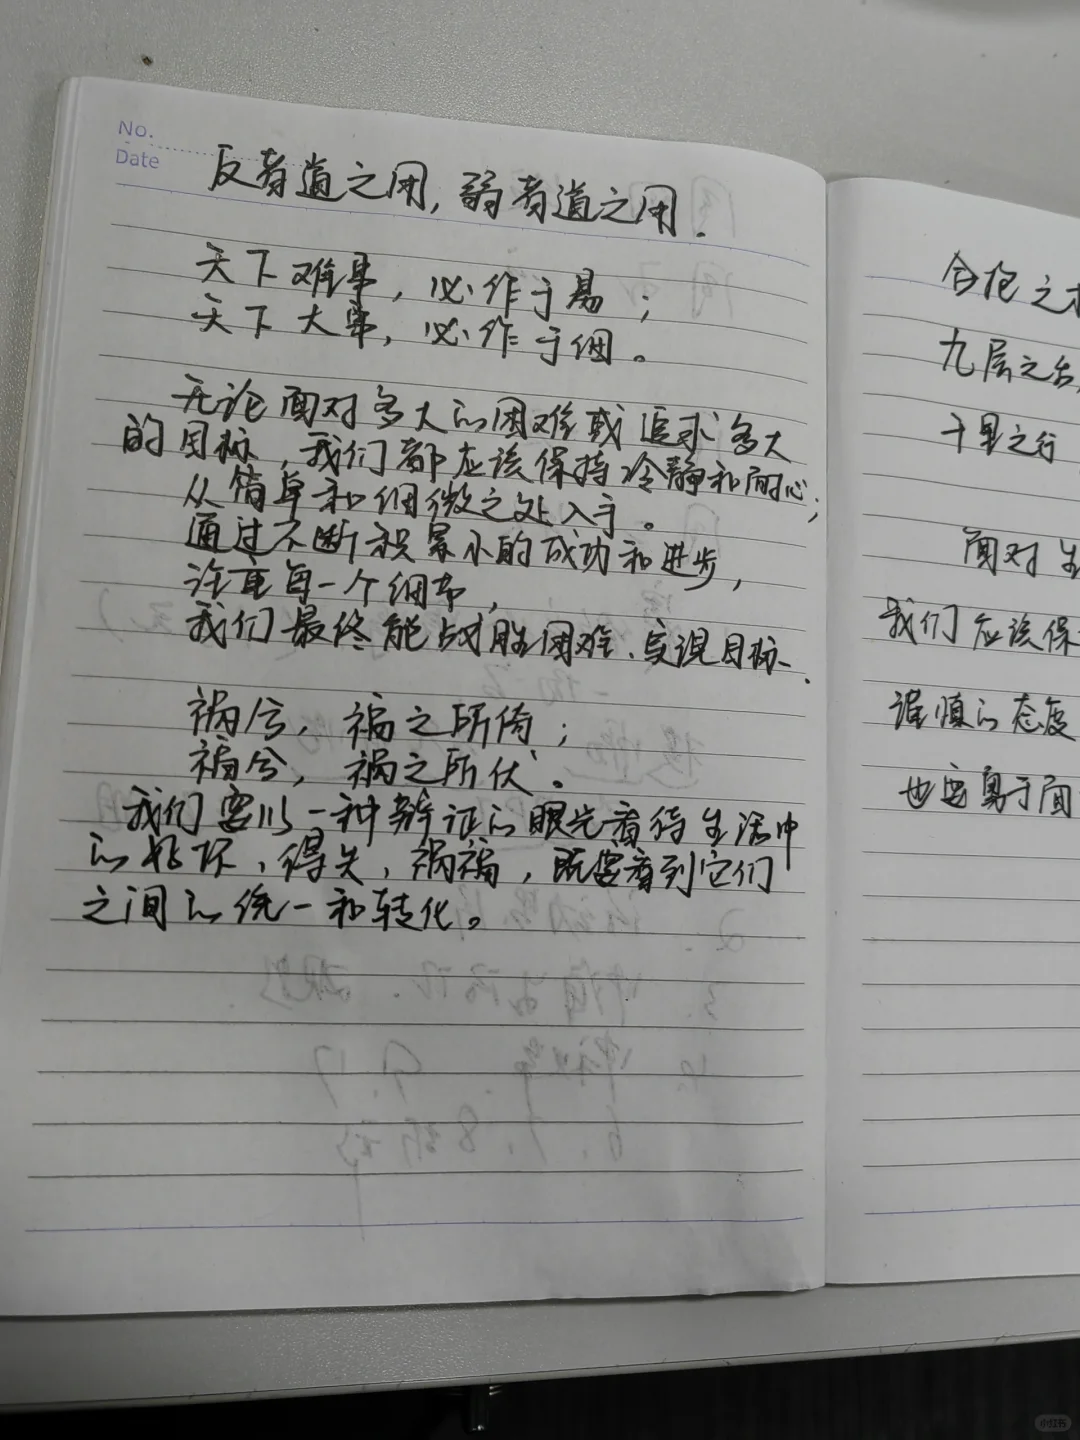 No.
Date
反者道之用，弱者道之用.
天下难事，必作于易；
天下大事，必作于细。
无论面对多大的困难或追求多大
的目标，我们都应该保持冷静和耐心；
从简单和细微之处入手。
通过不断积累小的成功和进步，
注重每一个细节，
我们最终能战胜困难、实现目标.
祸兮，福之所倚；
福兮，祸之所伏。
我们要以一种辩证的眼光看待生活中
的好坏、得失，祸福，既要看到它们
之间的统一和转化。
合抱之木
九层之台，
千里之行
面对生
我们应该保
谨慎的态度
也要勇于面
小红书